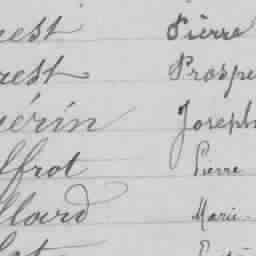 uest Pierre
rest Prospe
uérin Joseph
ffrot Pierre
llard Marie